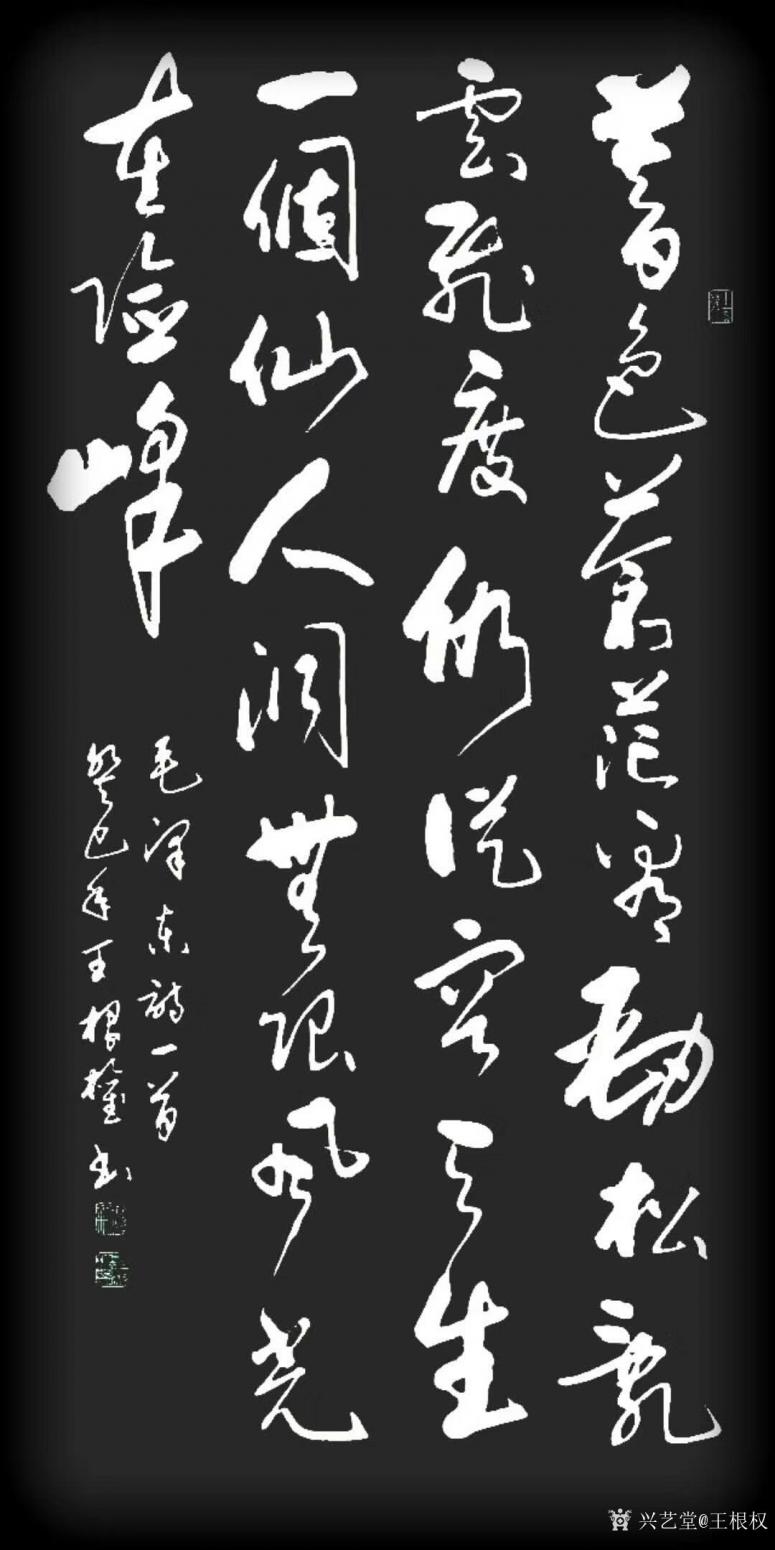 暮色蒼茫看勁松亂
雲飛度仍從容天生
一個仙人洞無限風光
在險峰
毛澤東詩一首
癸巳年王根權书
兴艺堂@王根权